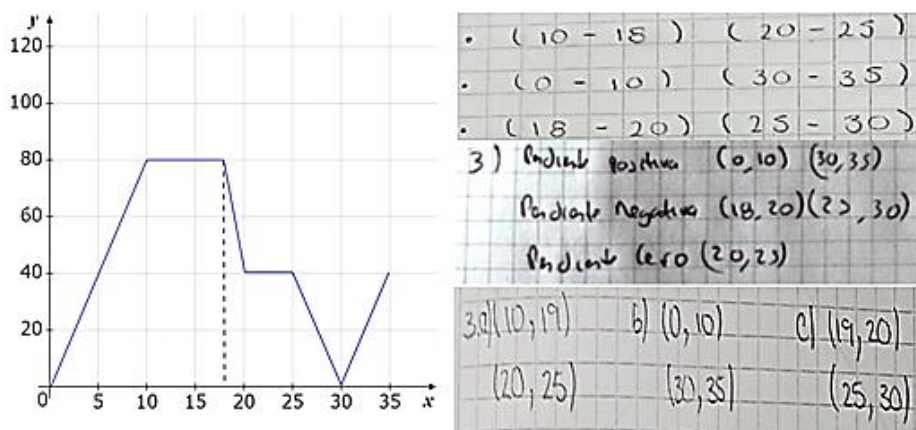 y
120
100
80
60
40
20
0 5 10 15 20 25 30 35 x
• (10 - 18) (20 - 25)
• (0 - 10) (30 - 35)
• (18 - 20) (25 - 30)
3) Pendiente positiva (0,10) (30,35)
Pendiente negativa (18,20)(25,30)
Pendiente cero (20,25)
3.a) (10,19) b) (0,10) c) (19,20)
(20,25) (30,35) (25,30)